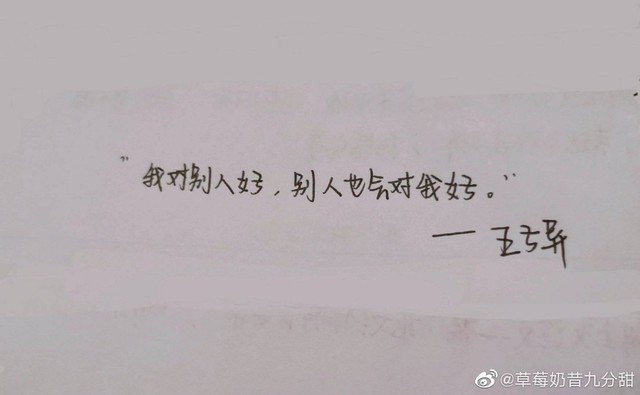 "我对别人好，别人也会对我好。"
——王子异
@草莓奶昔九分甜